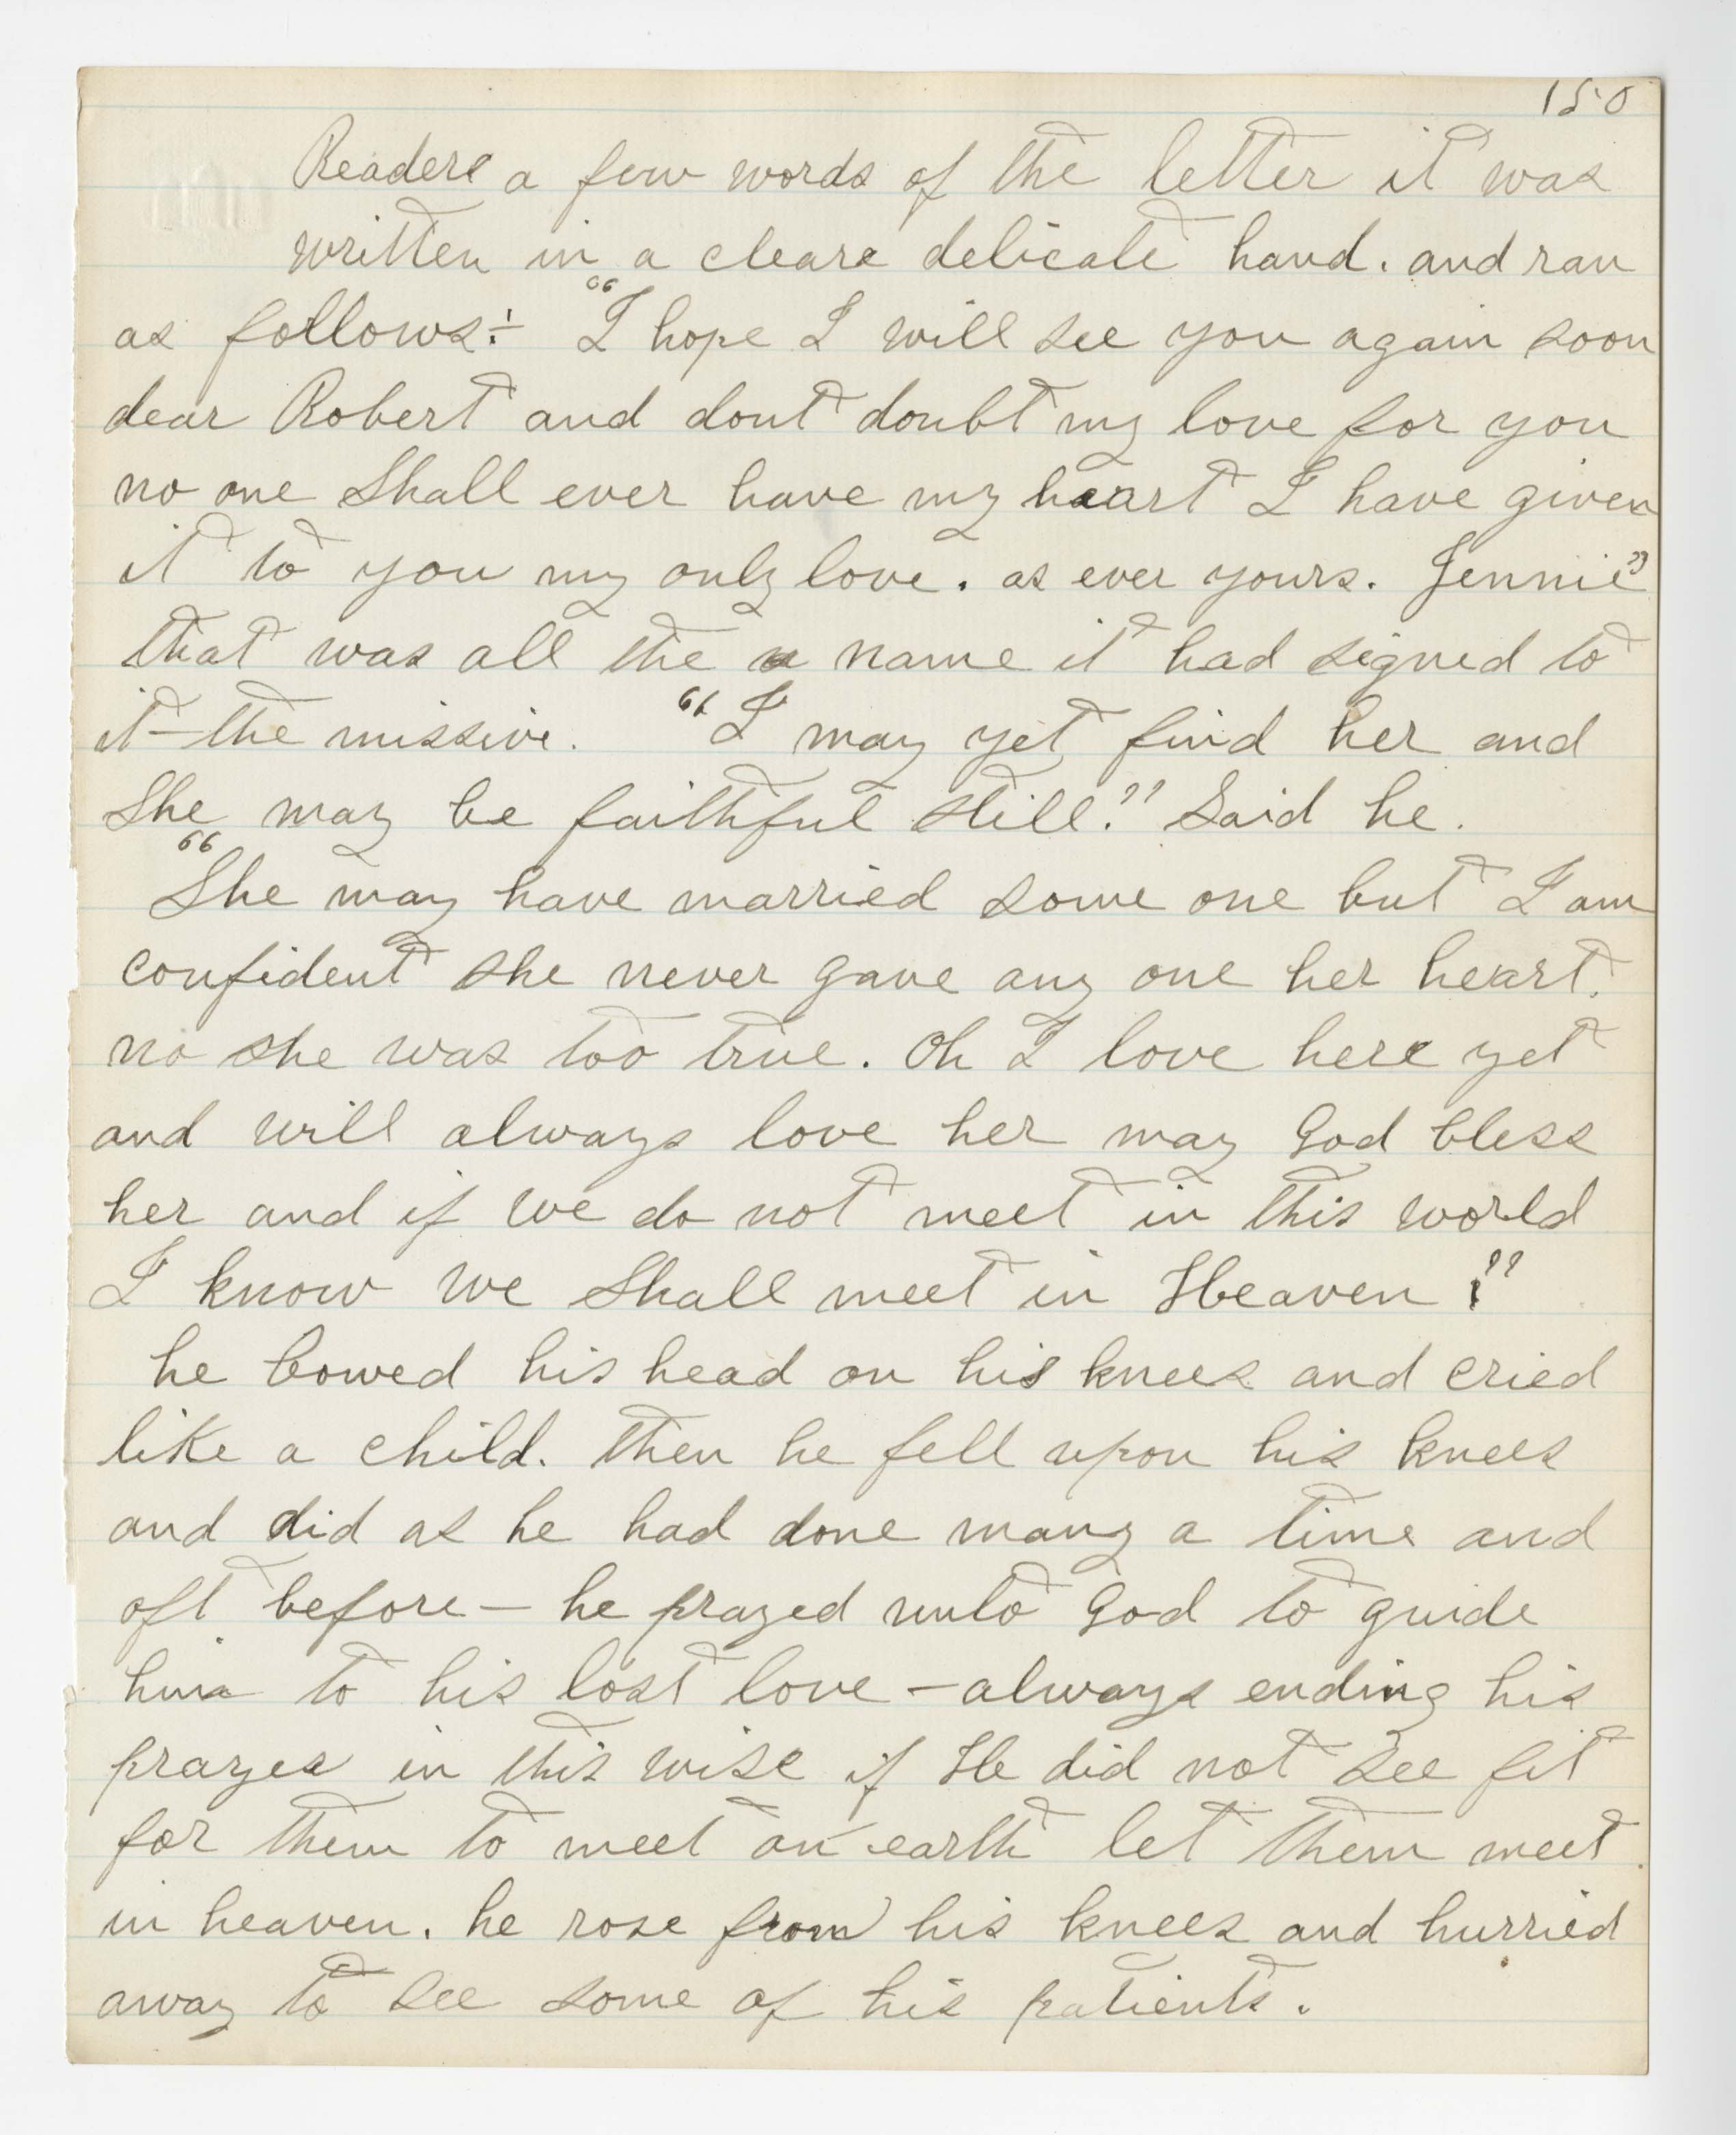 150
Readers a few words of the letter it was
written in a cleare delicate hand. and ran
as follows:- "I hope I will see you again soon
dear Robert and dont doubt my love for you
no one shall ever have my heart I have given
it to you my only love. as ever yours. Jennie"
that was all the name it had signed to
it - the missive. "I may yet find her and
she may be faithful still." Said he.
"She may have married some one but I am
confident she never gave any one her heart.
no she was too true. Oh I love here yet
and will always love her may God bless
her and if we do not meet in this world
I know we shall meet in Heaven!"
he bowed his head on his knees and cried
like a child. then he fell upon his knees
and did as he had done many a time and
oft before — he prayed unto God to guide
him to his lost love — always ending his
prayer in this wise if He did not see fit
for them to meet on earth let them meet
in heaven. he rose from his knees and hurried
away to see some of his patients.